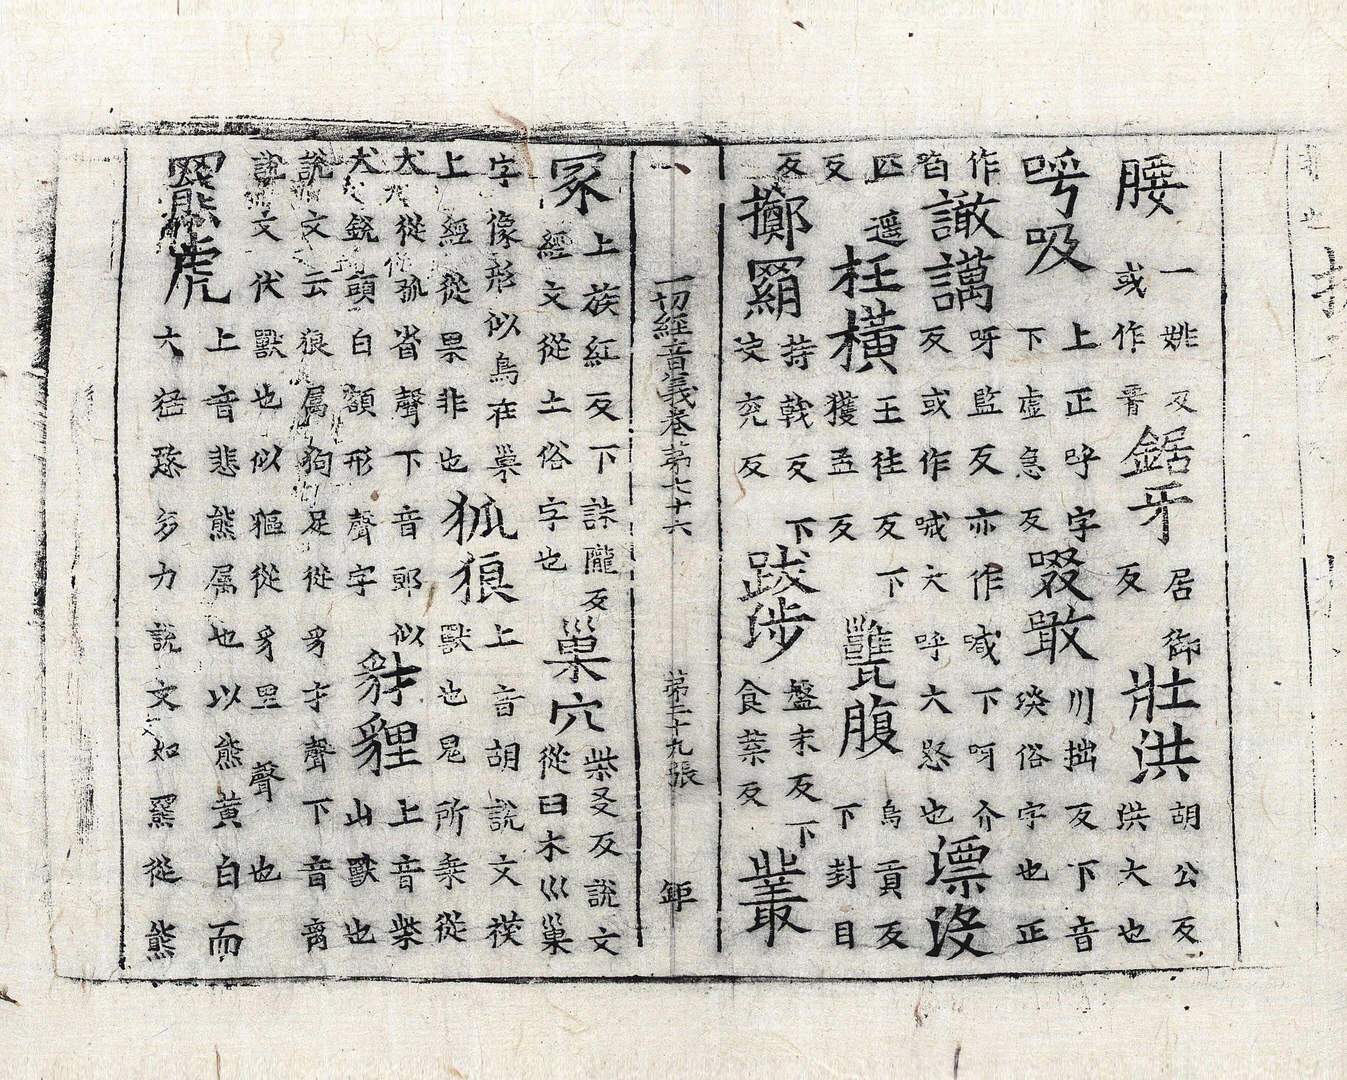 腰一姚反或作𦝫鋸牙居御反壯洪胡公反洪大也
呼吸上正呼字下虛急反啜㪉川拙反下音淡俗字也正
作啗譀講呀監反亦作喊下呵介反或作喊大呼大怒也漂沒
匹遥反枉橫王往反下獲孟反甕腹烏貢反下封目
反擲羂持戟反下决兖反跋涉盤末反下食葉反叢
一切經音義卷第七十六 第三十九張 鉅
冢上族紅反下誅隴反經文從土俗字也巢穴柴爻反說文從臼木巛巢
字像形似鳥在巢上經從果非也狐狼上音胡說文祅獸也鬼所乘從
犬從孤省聲下音郎似犬銳頭白額形聲字豺貍上音柴山獸也
說文云狼属狗足從豸才聲下音离說文伏獸也似貙從豸里聲也
羆虎上音悲熊属也以熊黃白而大猛憨多力說文如羆從熊